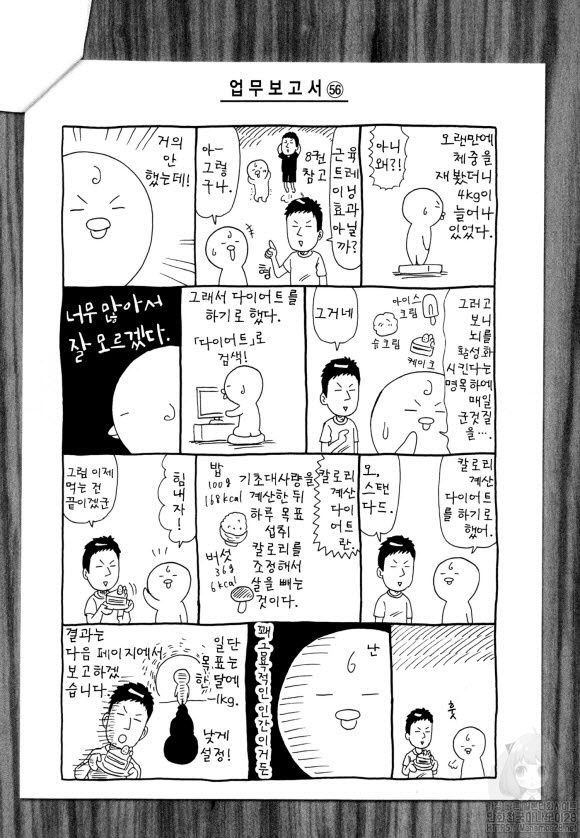 업무보고서 56
오랜만에
체중을
재 봤더니
4kg이
늘어나
있었다.
아니
왜?!
근육
트레이닝
효과
아닐
까?
8권
참고
형
아-
그렇
구나.
거의
안
했는데!
그러고
보니
뇌를
활성화
시킨다는
명목하에
매일
군것질
을….
아이스
크림
슈크림
케이크
그거네
그래서 다이어트를
하기로 했다.
「다이어트」로
검색!
너무 많아서
잘 모르겠다.
칼로리
계산
다이어트
를
하기로
했어.
오,
스탠
다드.
칼로리
계산
다이
어트란
기초대사량을
계산한 뒤
하루 목표
섭취
칼로리를
조정해서
살을 빼는
것이다.
밥
100g
168kcal
버섯
36g
6kcal
힘
내자!
그럼 이제
먹는 건
끝이겠군
훗
난
꽤 금욕적인 인간이거든
일단
목표는
한 달에
-1kg.
낮게
설정!
결과는
다음 페이지에서
보고하겠
습니다.